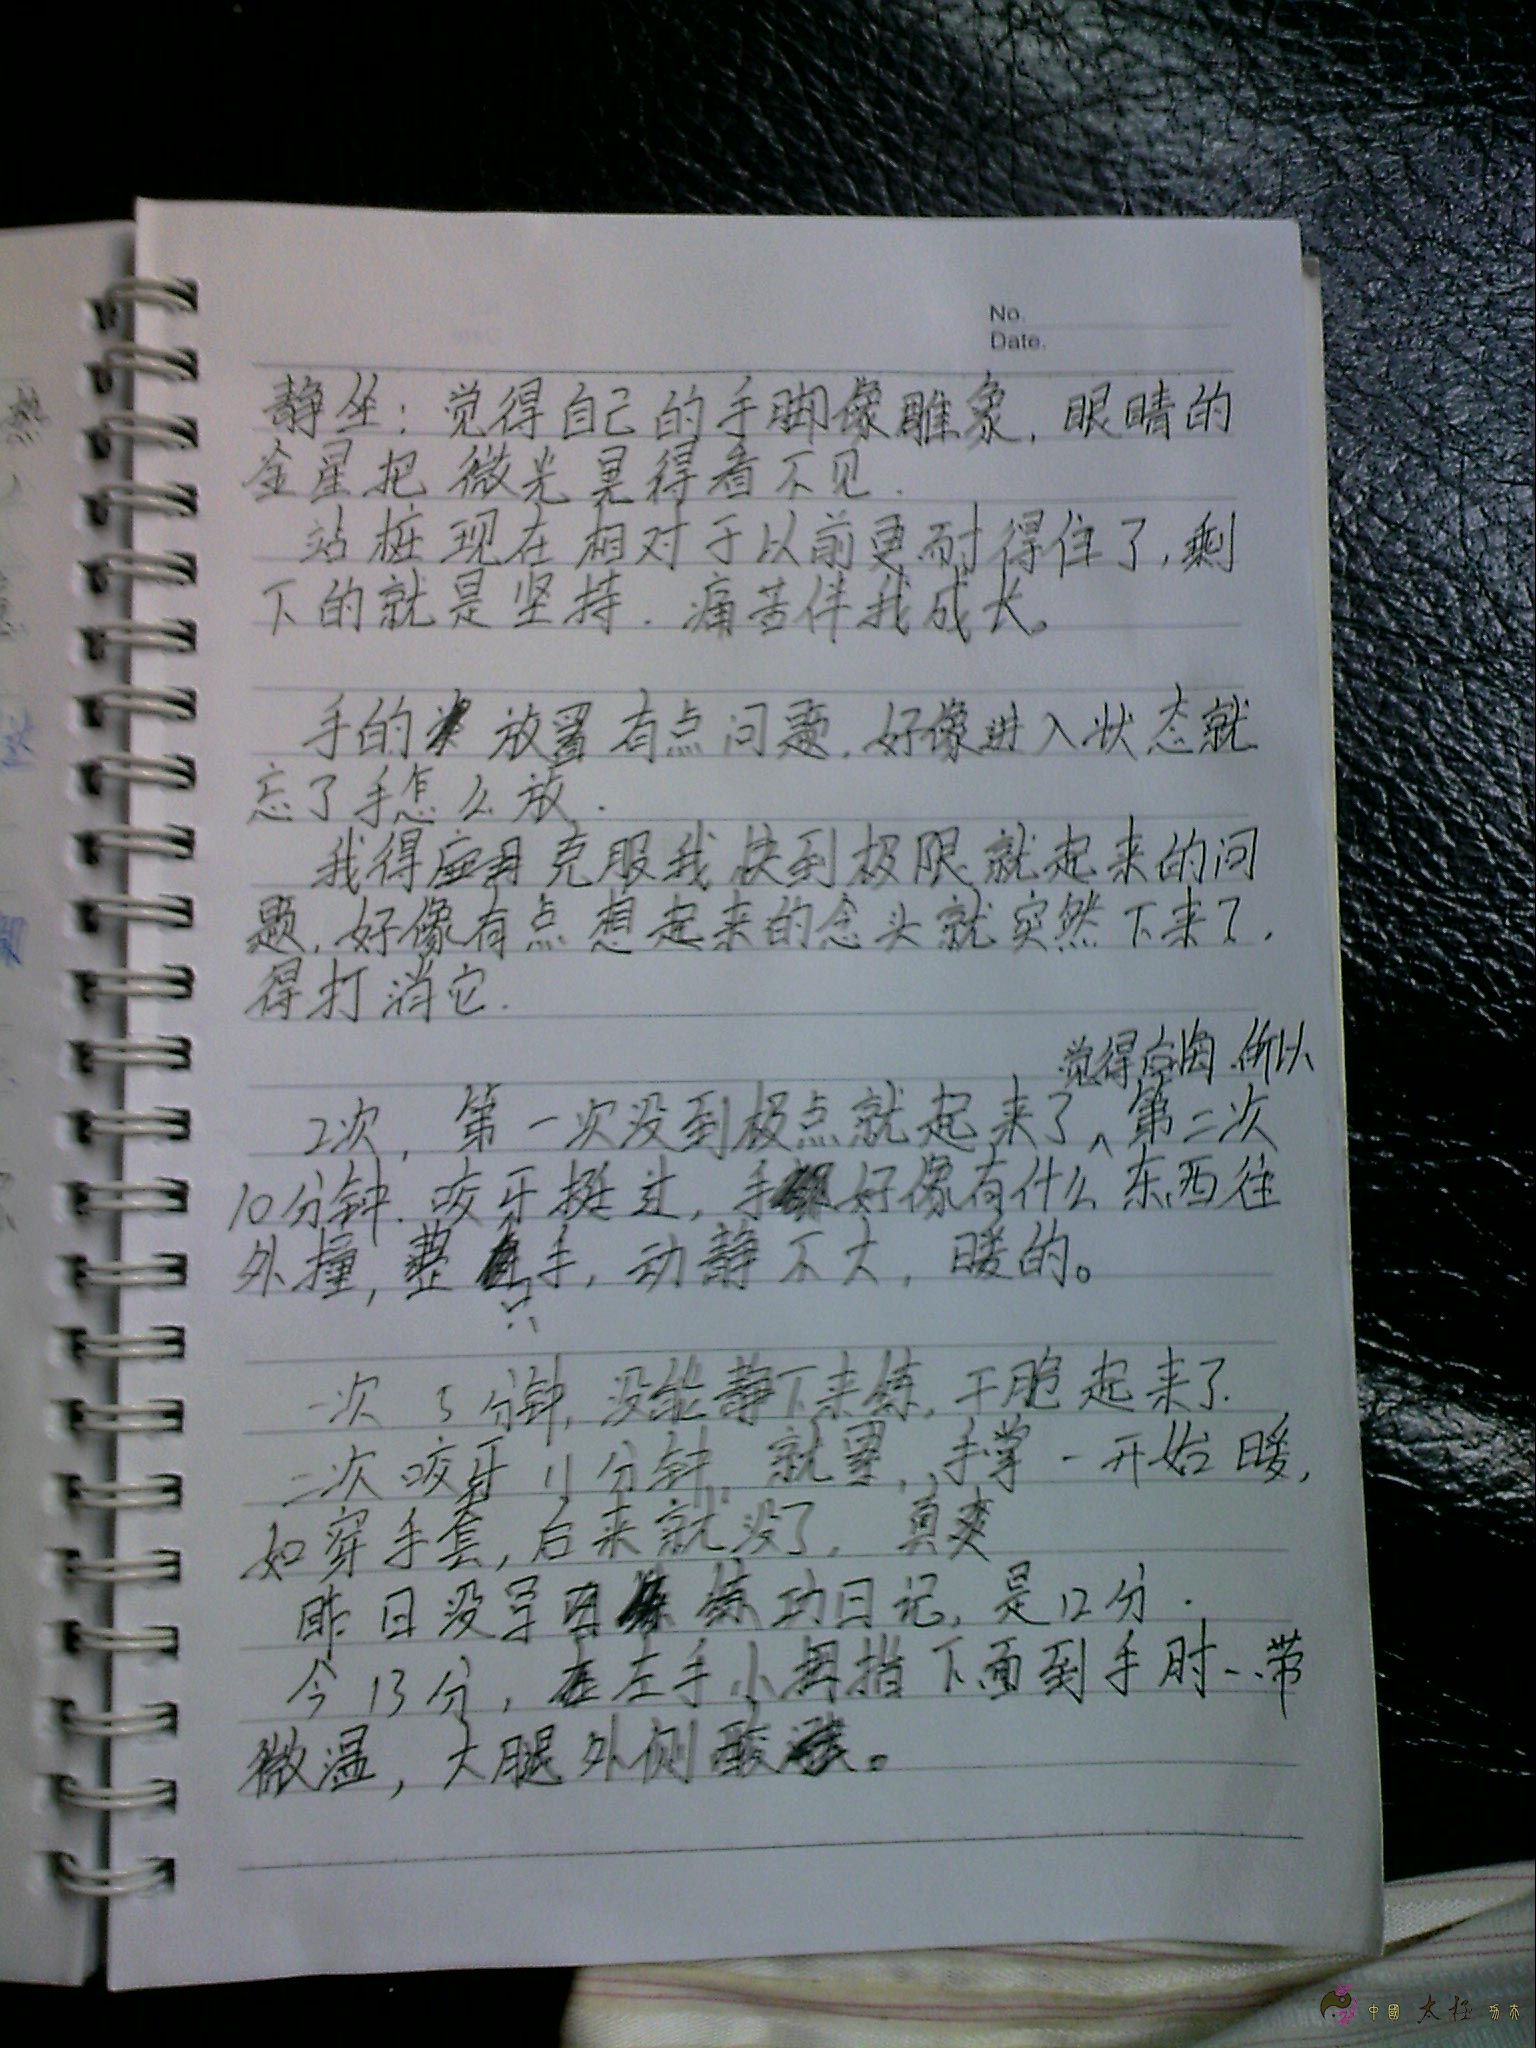 No.
Date.
静坐：觉得自己的手脚像雕象，眼睛的
金星把微光晃得看不见.
站桩现在相对于以前更耐得住了，剩
下的就是坚持.痛苦伴我成长。
手的放置有点问题，好像进入状态就
忘了手怎么放.
我得应用克服我快到极限就起来的问
题，好像有点想起来的念头就突然下来了，
得打消它.
觉得 所以
2次，第一次没到极点就起来了，第二次
10分钟.咬牙挺过，手好像有什么东西往
外撞，整手，动静不大，暖的。
只
一次5分钟，没能静下来练，干脆起来了.
二次咬牙11分钟，就累，手掌一开始暖，
如穿手套，后来就没了，真爽
昨日没写练功日记，是12分.
今13分，在左手小拇指下面到手肘一带
微温，大腿外侧酸涨。
中國太极功夫